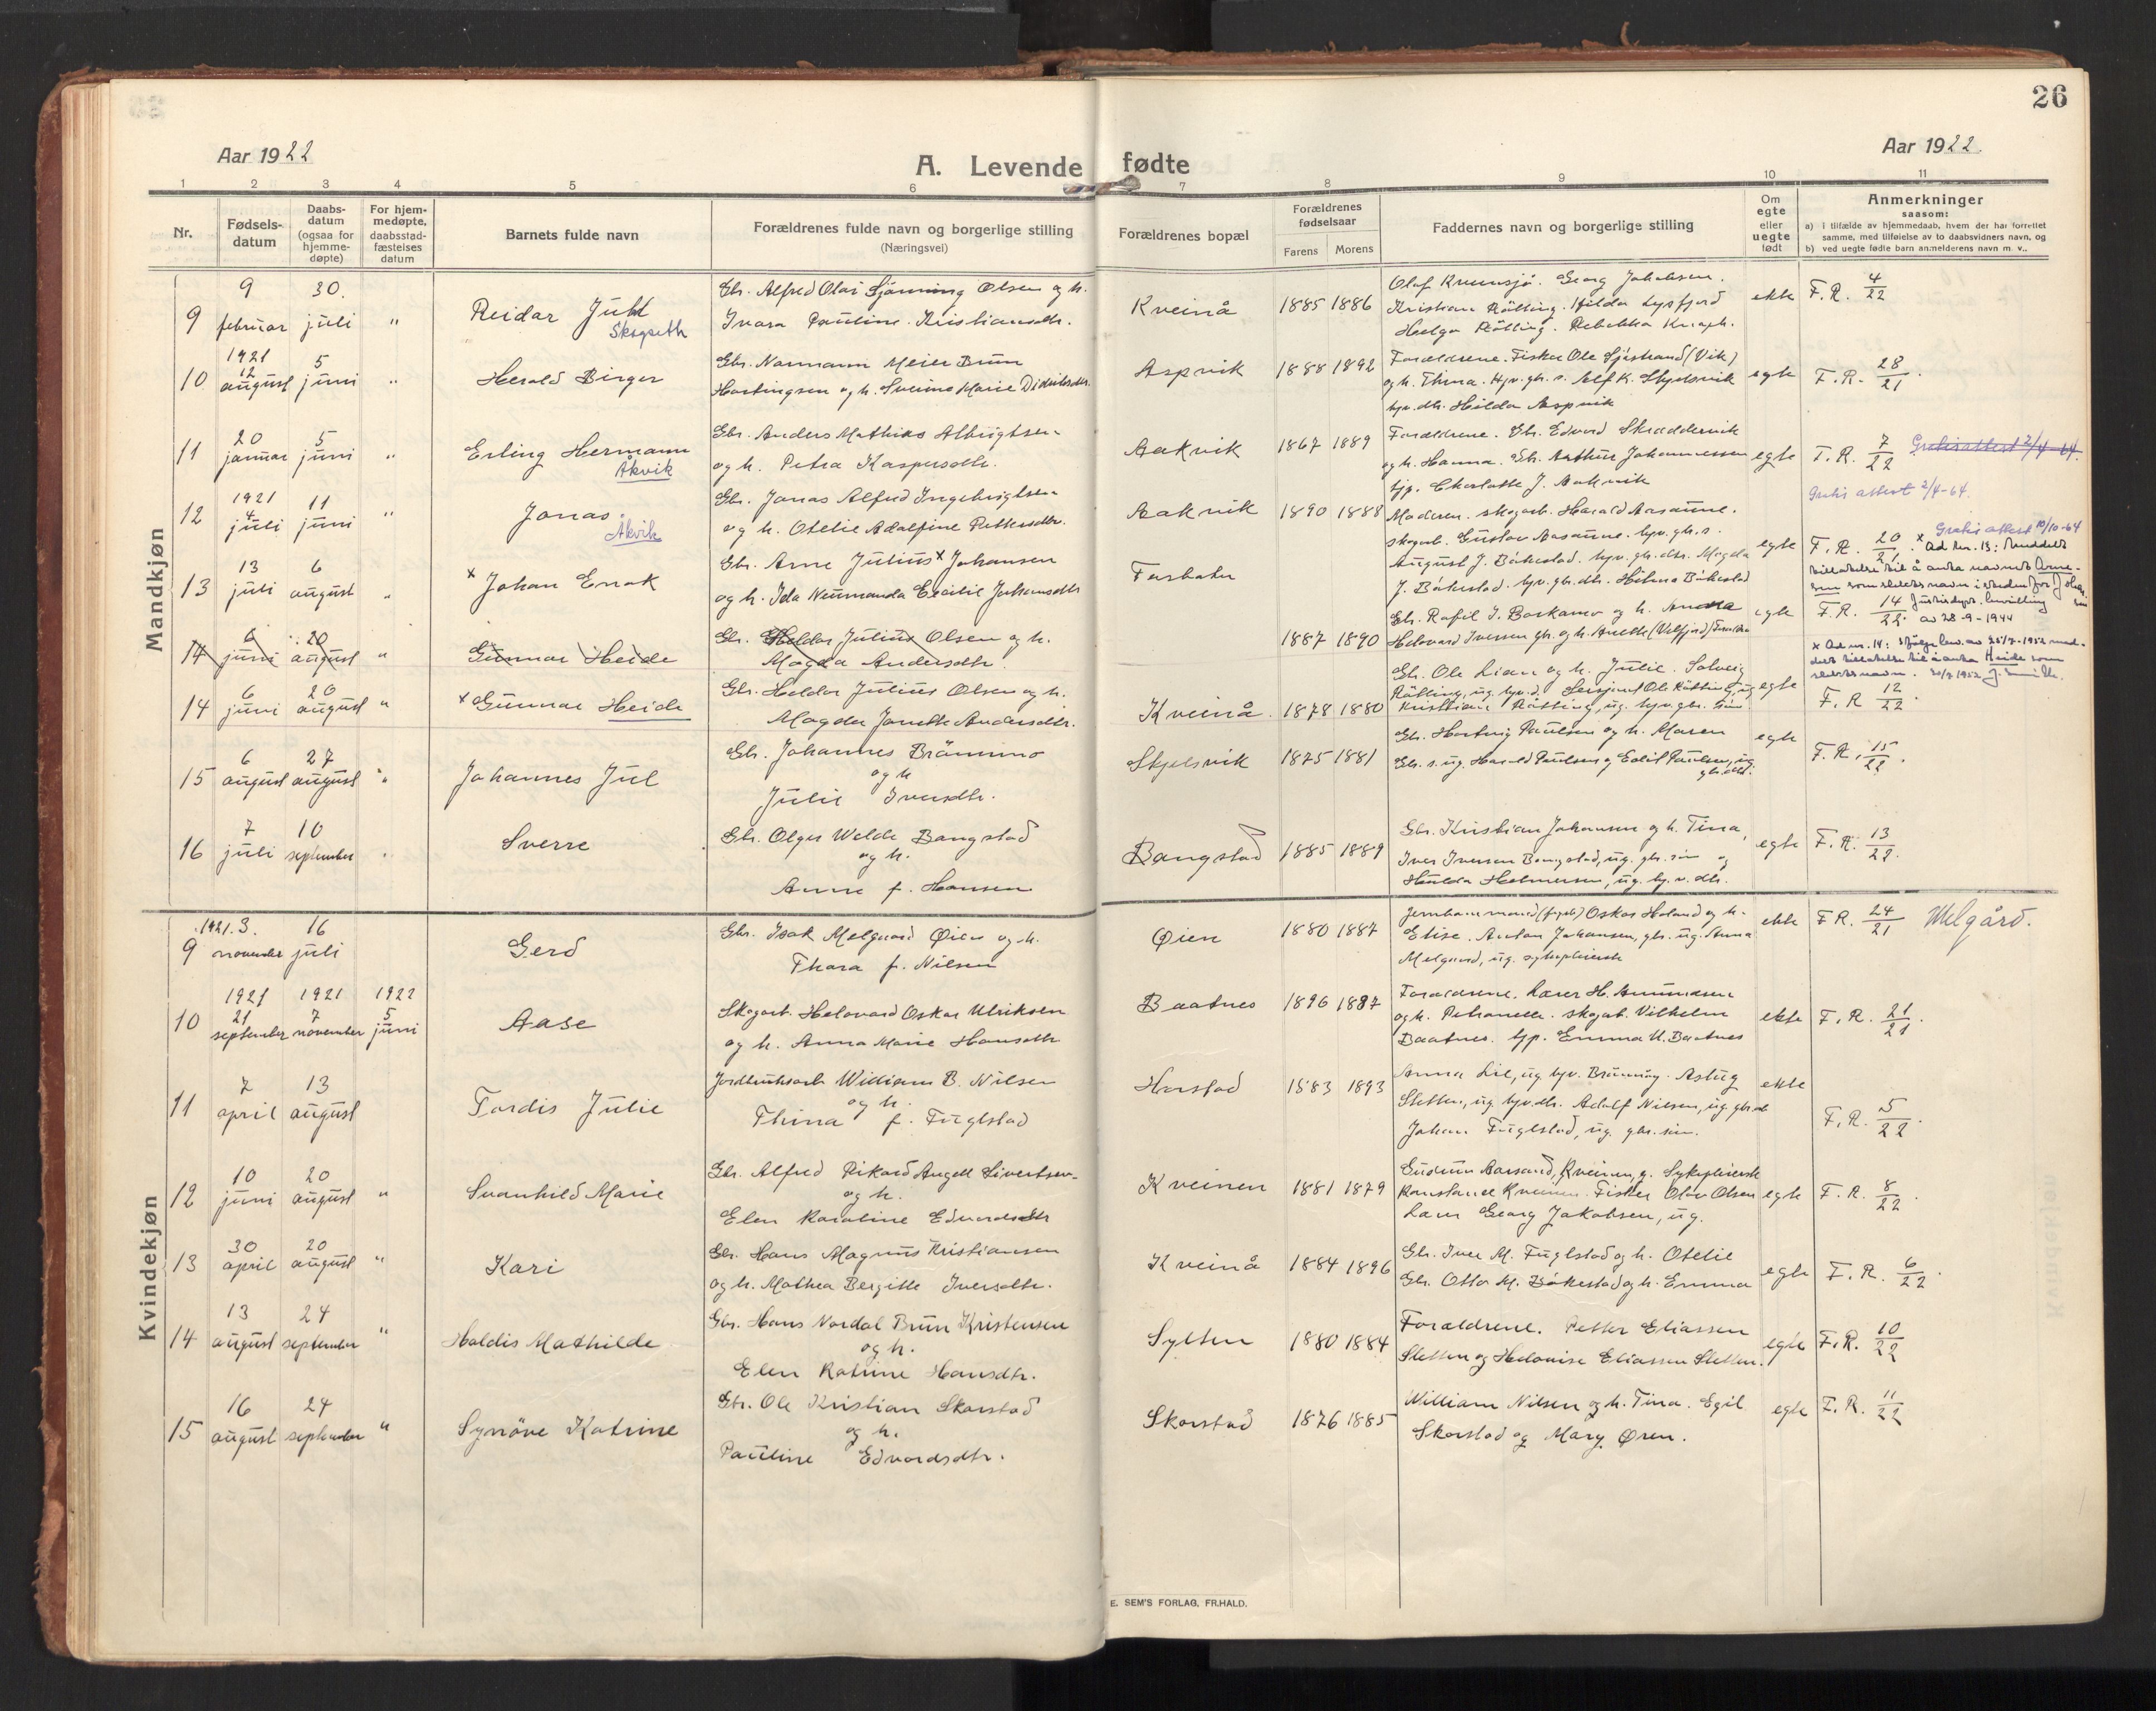 26
Aar 1922
A. Levende fødte
Aar 1922.
1 2 3 4 5 6 7 8 9 10 11
Nr.
Fødsels-
datum
Daabs-
datum
(ogsaa for
hjemme-
døpte)
For hjem-
medøpte,
daabsstad-
fæstelses
datum
Barnets fulde navn
Forældrenes fulde navn og borgerlige stilling
(Næringsvei)
Forældrenes bopæl
Forældrenes
fødselsaar
Farens Morens
Faddernes navn og borgerlige stilling
Om
egte
eller
uegte
født
Anmerkninger
saasom:
a) i tilfælde av hjemmedaab, hvem der har forrettet
samme, med tilføielse av to daabsvidners navn, og
b) ved uegte fødte barn anmelderens navn m. v..
Mandkjøn
9
9 februar
30. juli
"
Reidar Juhl
Skogseth
Gbr. Alfred Olai Sjønning Olsen og h.
Ivara Pauline Kristiansdtr.
Kveinå
1885 1886
Olaf Kveinsjø. Georg Jakobsen.
Kristian Rötting. Hilda Lysfjord
Helga Rötting. Rebekka
ekte
F. R. 4/22
10
1921
12 august
5 juni
"
Herald Birger
Gbr. Normann Meier Brun
Hartingsen og h. Marie
Aspvik
1888 1892
Forældrene. Fisker Ole Sjøstrand (Vik)
og h. Thina. Hjv. gbr. s. Alf K. Skjelsvik
hjv. dtr. Hilda Aspvik
egte
F. R. 28/21.
11
20 januar
5 juni
"
Erling Hermann
Åkvik
Gbr. Anders Mathias Albrigtsen
og h. Petra Kaspersdtr.
Aakvik
1867 1889
Forældrene. Gbr. Edvard Skræddervik
og h. Hanna. Gbr. Arthur Johannessen
tjp. Charlotte J. Aakvik
egte
F. R. 7/22
Gratis attest 2/4-64.
Gratis attest 2/4-64.
12
1921
4 juli
11 juni
"
Jonas.
Åkvik
Gbr. Jonas Alfred Ingebrigtsen
og h. Otelie Adolfine Pettersdtr.
Aakvik
1890 1888
Moderen. skogarb. Harald Aasanne.
skogarb. Gustav Aasanne. hjv. gbr. s.
August J. Båkestad. hjv. gbr. dtr. Magda
J. Båkestad. hjv. gbr. dtr. Helena Båkestad
egte
F. R. 20/21.
Gratis attest 10/10-64
13
13 juli
6 august
"
x Johan Enok
Gbr. Arne Julius x Johansen
og h. Ida Neumanda Cecilie Johansdtr
1887 1890
Gbr. Rafil I. Borkamo og h. Anna
egte
F. R. 14/22.
x Ad nr. 13: Meddelt
tillatelse til å anta navnet Arne-
sen som slektsnavn istedenfor Johan-
sen
Justisdept. bevilling
av 28-9-1944
14
6 juni
20 august
"
Gunnar Heide
Gbr. Haldor Julius Olsen og h.
Magda Andersdtr.
14
6 juni
20 august
"
x Gunnar Heide
Gbr. Haldor Julius Olsen og h.
Magda Janette Andersdtr.
Kveinå
1878 1880
Gbr. Ole Lian og h. Julie. Solveig
Rötting, ug. hjv. d. Sersjant Ole Rötting, ug
Kristian Rötting, ug. hjv. gbr. sön.
egte
F. R 12/22.
x Ad nr. 14: Ifølge bev. av 25/7-1952 med-
delt tillatelse til å anta Heide som
slektsnavn.
15
6 august
27 august
"
Johannes Jul
Gbr. Johannes Brännmo
og h
Julie Iversdtr.
Skjelsvik
1875 1881
Gbr. Hartvig Paulsen og h. Maren
Gbr. s. ug. Harald Paulsen og Edit Paulsen, ug.
gbr. dtr.
egte
F. R. 15/22.
16
7 juli
10 september
"
Sverre
Gbr. Olger Welde Bangstad
og h.
Anna f. Hansen
Bangstad
1885 1889
Gbr. Kristian Johansen og h. Tina,
Iver Iversen Bangstad, ug. gbr. sön og
Hulda Helmersen, ug. hj. v. dtr.
egte
F. R. 13/22.
Kvindekjøn
9
1921. 3. november
16 juli
Gerd
Gbr. Isak Melgaard Øien og h.
Thora f. Nilsen
Øien
1880 1887
Oskar Holand og h.
Elise. Anton Johansen, gbr. ug. Anna
Melgaard, ug. sykepleierske
ekte
F R. 24/21
Melgård.
10
1921
21 september
1921
7 november
1922
5 juni
Aase
Skogarb. Halovard Oskar Ulriksen
og h. Anna Marie Hansdtr
Baatnes
1896 1887
Forældrene. Lærer H. Amundsen
og h. Petranelle. skogarb. Vilhelm
Baatnes. tjp. Emma U. Baatnes
ekte
F. R. 21/21.
11
7 april
13 august
Tordis Julie
Jordbruksarb William B. Nilsen
og h.
Thina f. Fuglstad
Harstad
1883 1893
Anna Lie, ug. hjv. Brönnöy. Aslug
Sletten, ug. hjv. dtr. Adolf Nilsen, ug. gbr. s
Johan Fuglstad, ug. gbr. sön.
ekte
F. R. 5/22.
12
10 juni
20 august
"
Svanhild Marie
Gbr. Alfred Rikard Angell Sivertsen
og h.
Elen Karoline Edvardsdtr
Kveinen
1881 1879
Gudrun Aarsand, Kveinen, g. Sykepleierske
Konstanse Kveinen. Fisker Olav Olsen
Lærer Georg Jakobsen, ug.
egte
F. R. 8/22.
13
30 april
20 august
"
Kari
Gbr. Hans Magnus Kristiansen
og h. Mathea Bergitte Iversdtr.
Kveinå
1884 1896
Gbr. Iver M. Fuglstad og h. Otelie
Gbr. Otto M. Båkestad og h. Emma
egte
F. R. 6/22.
14
13 august
24 september
"
Haldis Mathilde
Gbr. Hans Nordal Brun Kristensen
og h.
Elen Katrine Hansdtr.
Sylten
1880 1884
Forældrene. Petter Eliassen
Sletten og Helovise Eliassen Sletten.
egte
F. R. 10/22
15
16 august
24 september
"
Synöve Katrine
Gbr. Ole Kristian Skarstad
og h.
Pauline Edvardsdtr.
Skarstad
1876 1885
William Nilsen og h. Tina. Egil
Skarstad og Mary Øren.
egte
F. R. 11/22
E. SEM'S FORLAG, FR.HALD.